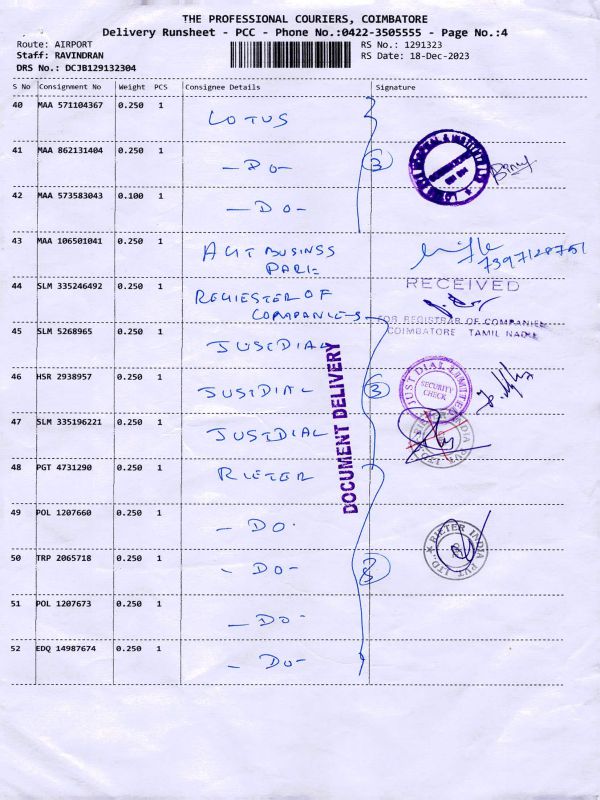 THE PROFESSIONAL COURIERS, COIMBATORE
Delivery Runsheet - PCC - Phone No.:0422-3505555 - Page No.:4
Route: AIRPORT
Staff: RAVINDRAN
DRS No.: DCJB129132304
RS No.: 1291323
RS Date: 18-Dec-2023
S No Consignment No Weight PCS Consignee Details Signature
40 MAA 571104367 0.250 1 LOTUS
41 MAA 862131404 0.250 1 -DO- 3
42 MAA 573583043 0.100 1 -DO-
43 MAA 106501041 0.250 1 BUSINSS
7397128751
44 SLM 335246492 0.250 1 REGIESTER OF
COMPANIES
RECEIVED
FOR REGISTRAR OF COMPANIES
COIMBATORE TAMIL NADU
45 SLM 5268965 0.250 1 JUSTDIAL
46 HSR 2938957 0.250 1 JUSTDIAL 3
JUST DIAL LIMITED
SECURITY
CHECK
47 SLM 335196221 0.250 1 JUSTDIAL
DOCUMENT DELIVERY
48 PGT 4731290 0.250 1 RIETER
49 POL 1207660 0.250 1 -DO-
50 TRP 2065718 0.250 1 -DO-
RIETER INDIA PVT LTD.
51 POL 1207673 0.250 1 -DO-
52 EDQ 14987674 0.250 1 -DO-